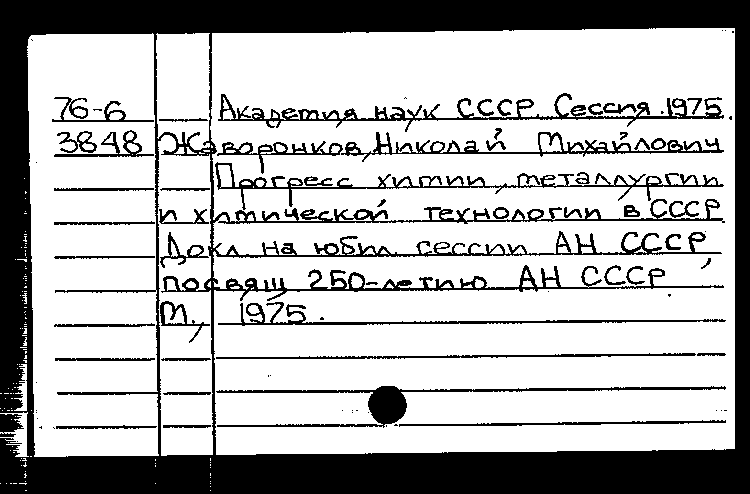 76-6 Академия наук СССР. Сессия. 1975.
3848 Жаворонков, Николай Михайлович
Прогресс химии, металлургии
и химической технологии в СССР
Докл. на юбил. сессии АН СССР,
посвящ. 250-летию АН СССР.
М., 1975.